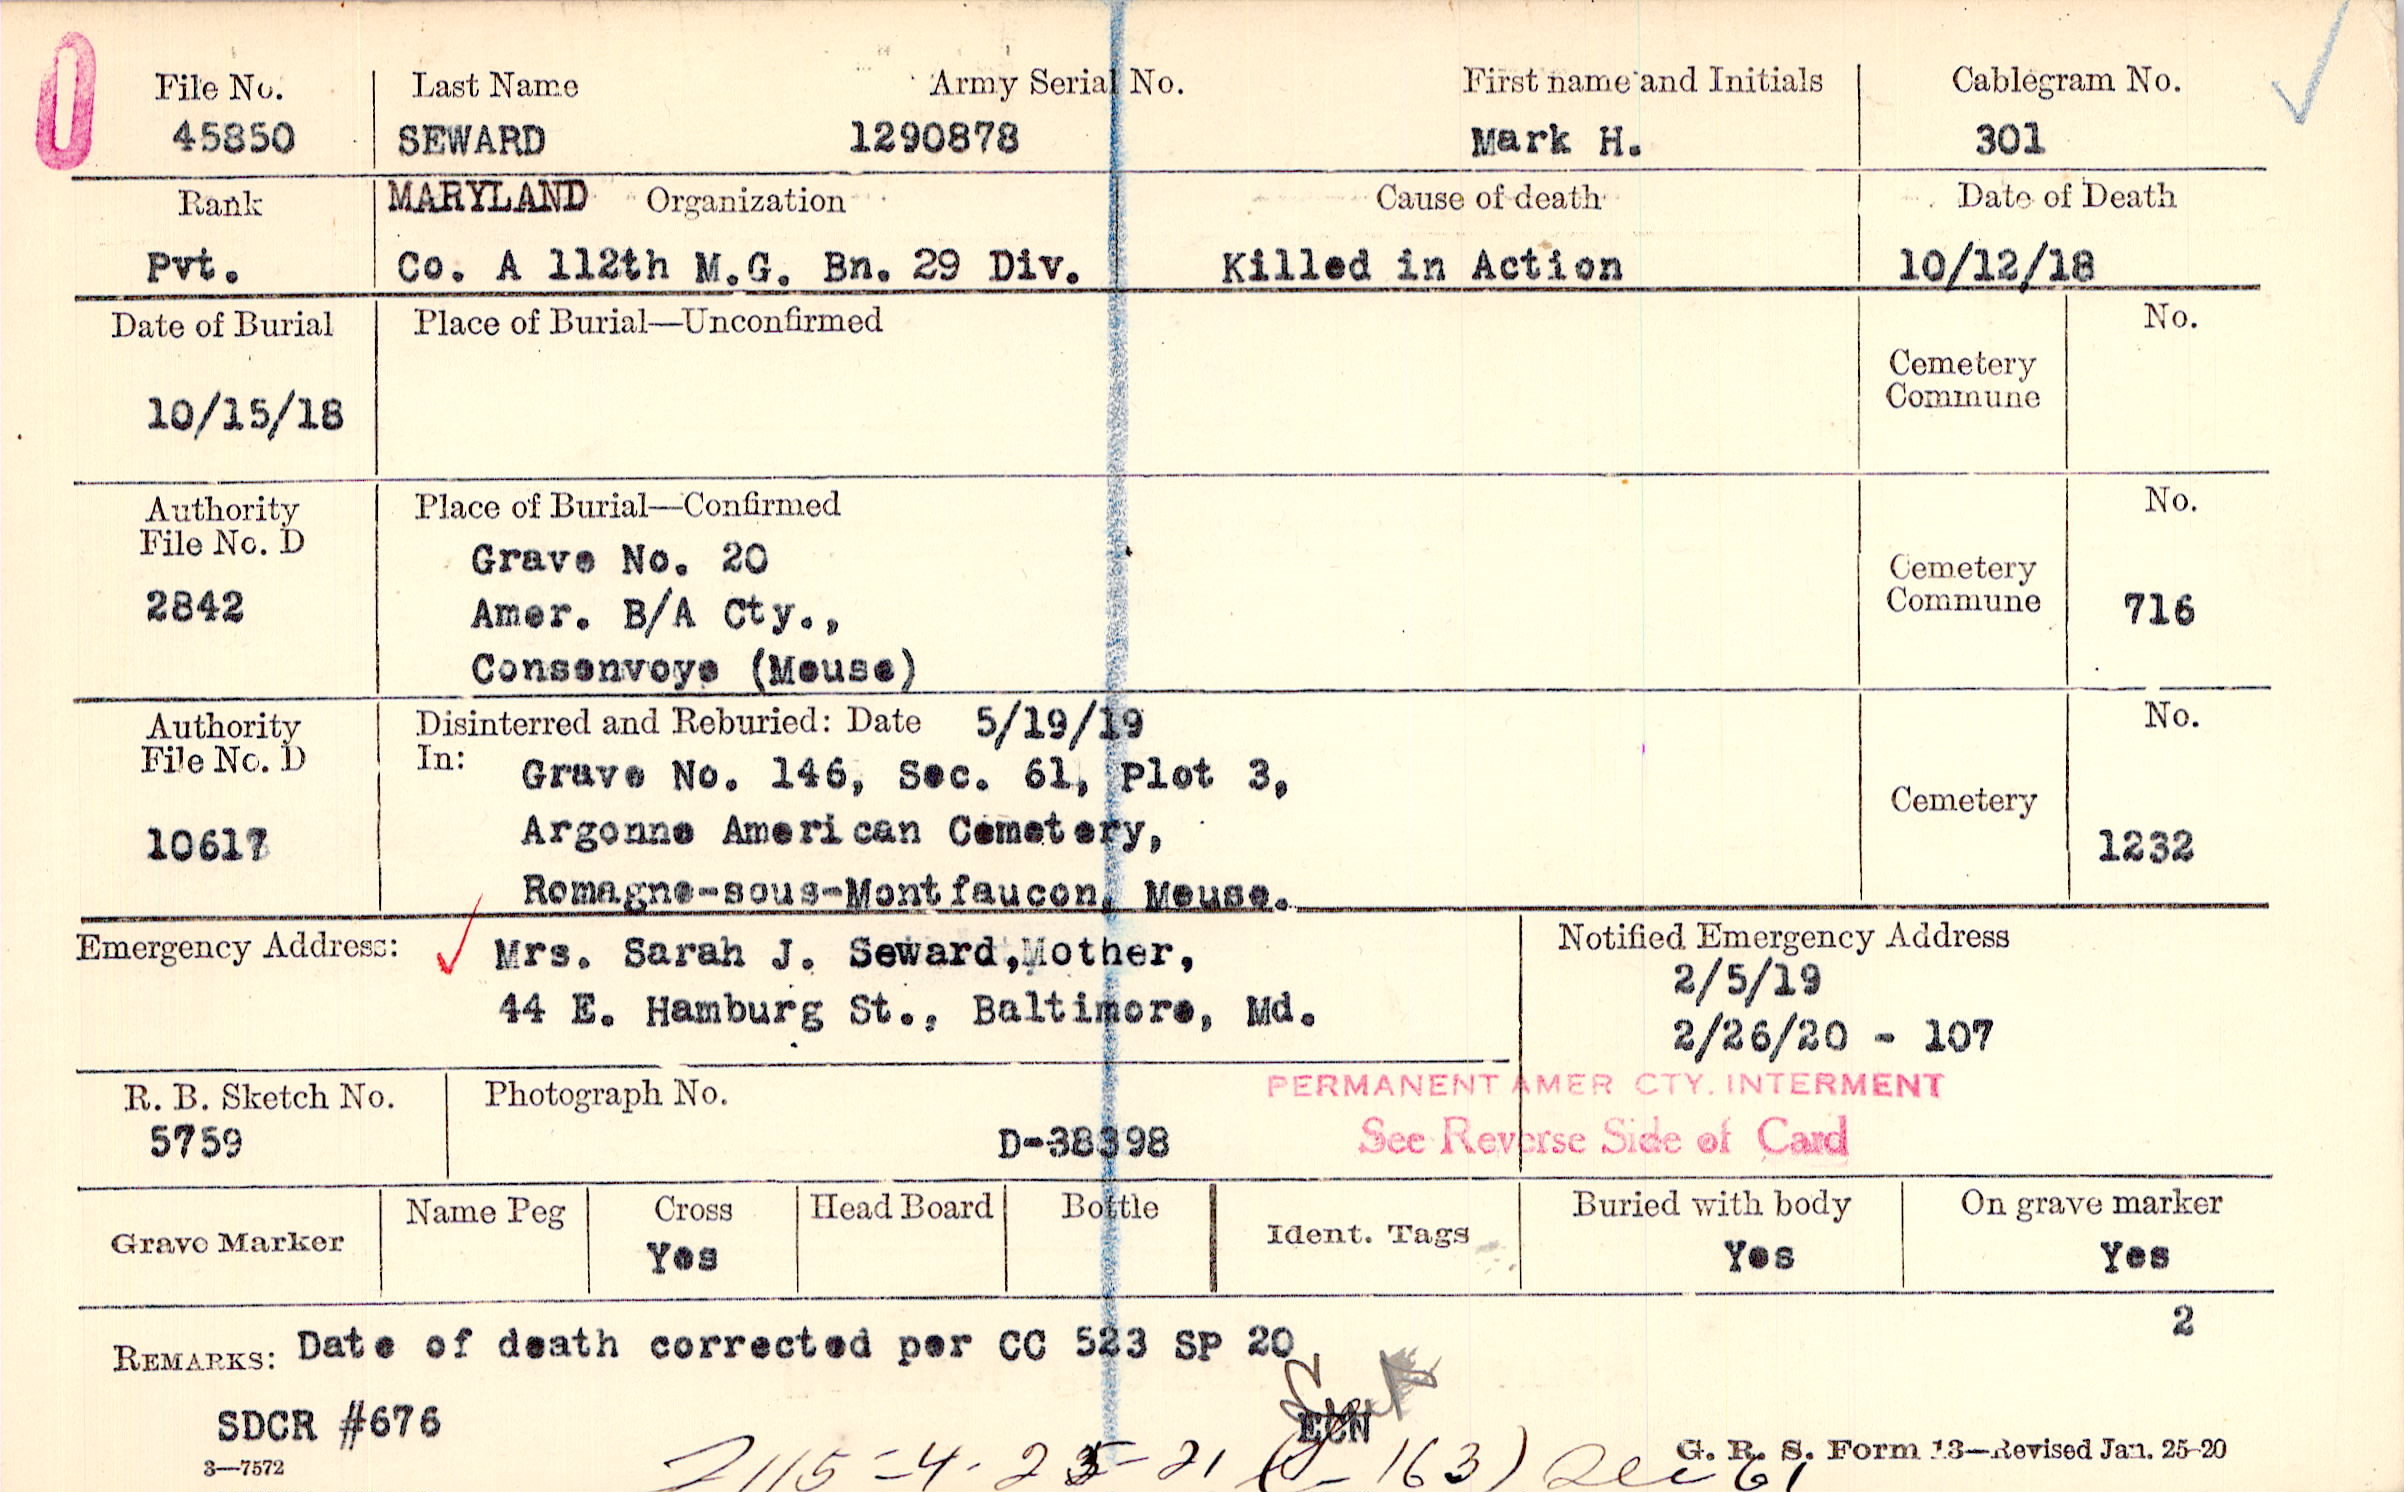 File No. Last Name Army Serial No. First name and Initials Cablegram No.
45850 SEWARD 1290878 Mark H. 301
Rank MARYLAND Organization Cause of death Date of Death
Pvt. Co. A 112th M.G. Bn. 29 Div. Killed in Action 10/12/18
Date of Burial Place of Burial—Unconfirmed No.
Cemetery
Commune
10/15/18
Authority Place of Burial—Confirmed No.
File No. D
Grave No. 20
Cemetery
2842 Amer. B/A Cty., Commune 716
Consenvoye (Meuse)
Authority Disinterred and Reburied: Date 5/19/19 No.
File No. D In:
Grave No. 146, Sec. 61, Plot 3,
Cemetery
10617 Argonne American Cemetery, 1232
Romagne-sous-Montfaucon, Meuse.
Emergency Address: Mrs. Sarah J. Seward, Mother, Notified Emergency Address
2/5/19
44 E. Hamburg St., Baltimore, Md.
2/26/20 - 107
PERMANENT AMER CTY. INTERMENT
R. B. Sketch No. Photograph No.
5759 D-38398 See Reverse Side of Card
Grave Marker Name Peg Cross Head Board Bottle Ident. Tags Buried with body On grave marker
Yes Yes Yes
2
REMARKS: Date of death corrected per CC 523 SP 20
SDCR #676 ECN
3—7572 G. R. S. Form 13—Revised Jan. 25-20